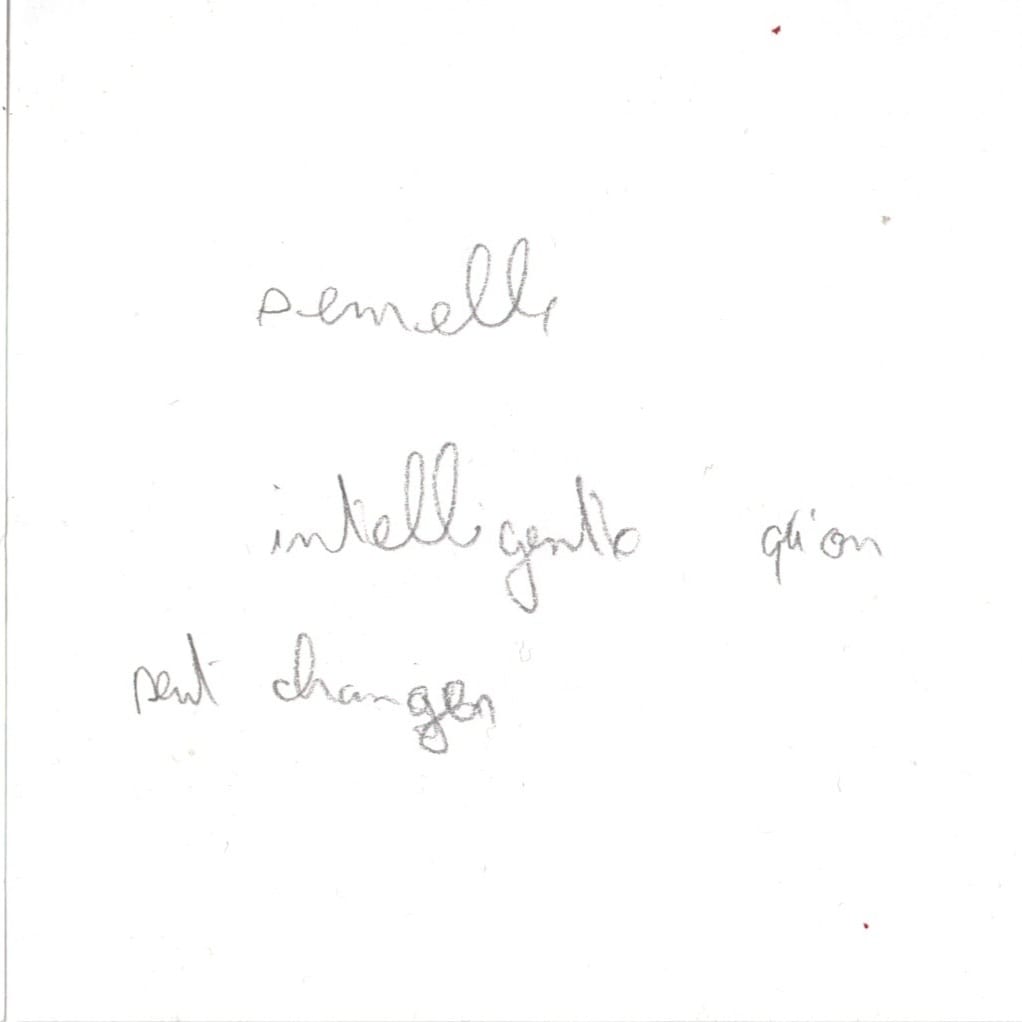 semelle
intelligente qu'on
peut changer